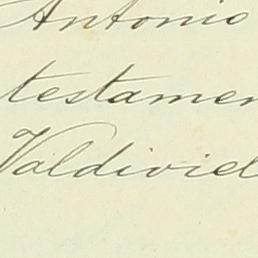 Antonio
testamen
Valdivied